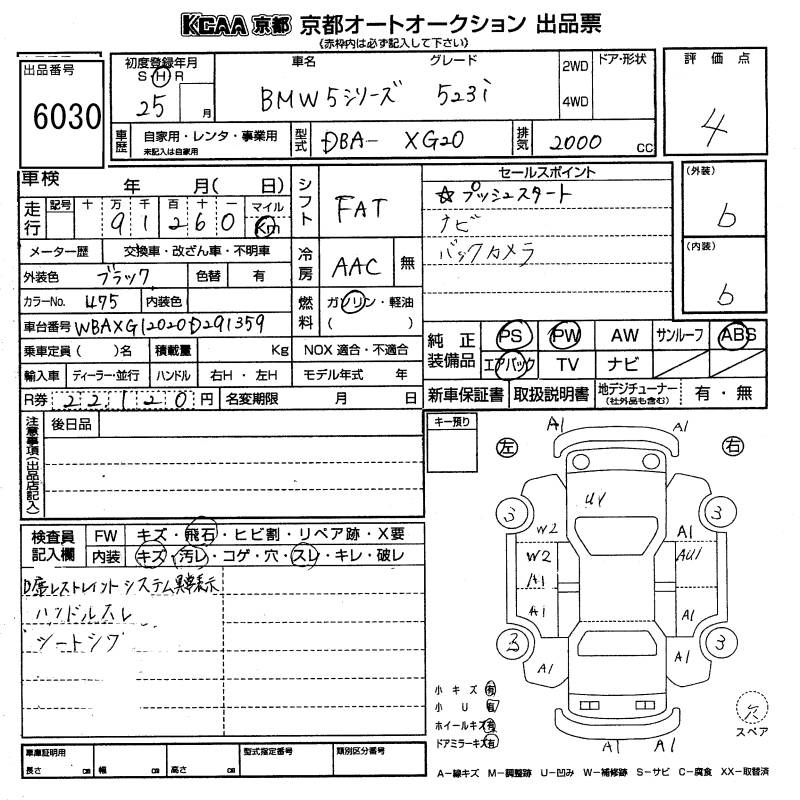 KCAA 京都 京都オートオークション 出品票
(赤枠内は必ず記入して下さい)
出品番号
6030
初度登録年月
S H R
25 月
車名 グレード
BMW 5シリーズ 523i
2WD
4WD
ドア・形状
評価点
4
車歴
自家用・レンタ・事業用
未記入は自家用
型式
DBA- XG20
排気
2000 CC
車検 年 月( 日)
走行
記号 十 万 千 百 十 一 マイル
9 1 2 6 0 Km
メーター歴 交換車・改ざん車・不明車
外装色 ブラック 色替 有
カラーNo. 475 内装色
車台番号 WBAXG12020D291359
乗車定員 ( )名 積載量 Kg
輸入車 ディーラー・並行 ハンドル 右H・左H
R券 22120 円 名変期限 月 日
シフト
FAT
冷房
AAC 無
燃料
ガソリン・軽油
( )
NOX 適合・不適合
モデル年式 年
セールスポイント
☆プッシュスタート
ナビ
バックカメラ
(外装)
b
(内装)
b
純正装備品
PS PW AW サンルーフ ABS
エアバック TV ナビ
新車保証書 取扱説明書 地デジチューナー(社外品も含む) 有・無
注意事項(出品店記入)
後日品
キー預り
検査員記入欄
FW キズ・飛石・ヒビ割・リペア跡・X要
内装 キズ・汚レ・コゲ・穴・スレ・キレ・破レ
D席レストレイントシステム異常表示
ハンドルスレ
シートシワ
左 右
A1 A1
U1
3 3
W2 A1
W2 AU1
A1
A1 A1
3 3
A1 A1
A1 A1
小キズ 有
小U 有
ホイールキズ 有
ドアミラーキズ 有
欠
スペア
車庫証明用
長さ cm 幅 cm 高さ cm
型式指定番号
類別区分番号
A-線キズ M-調整跡 U-凹み W-補修跡 S-サビ C-腐食 XX-取替済